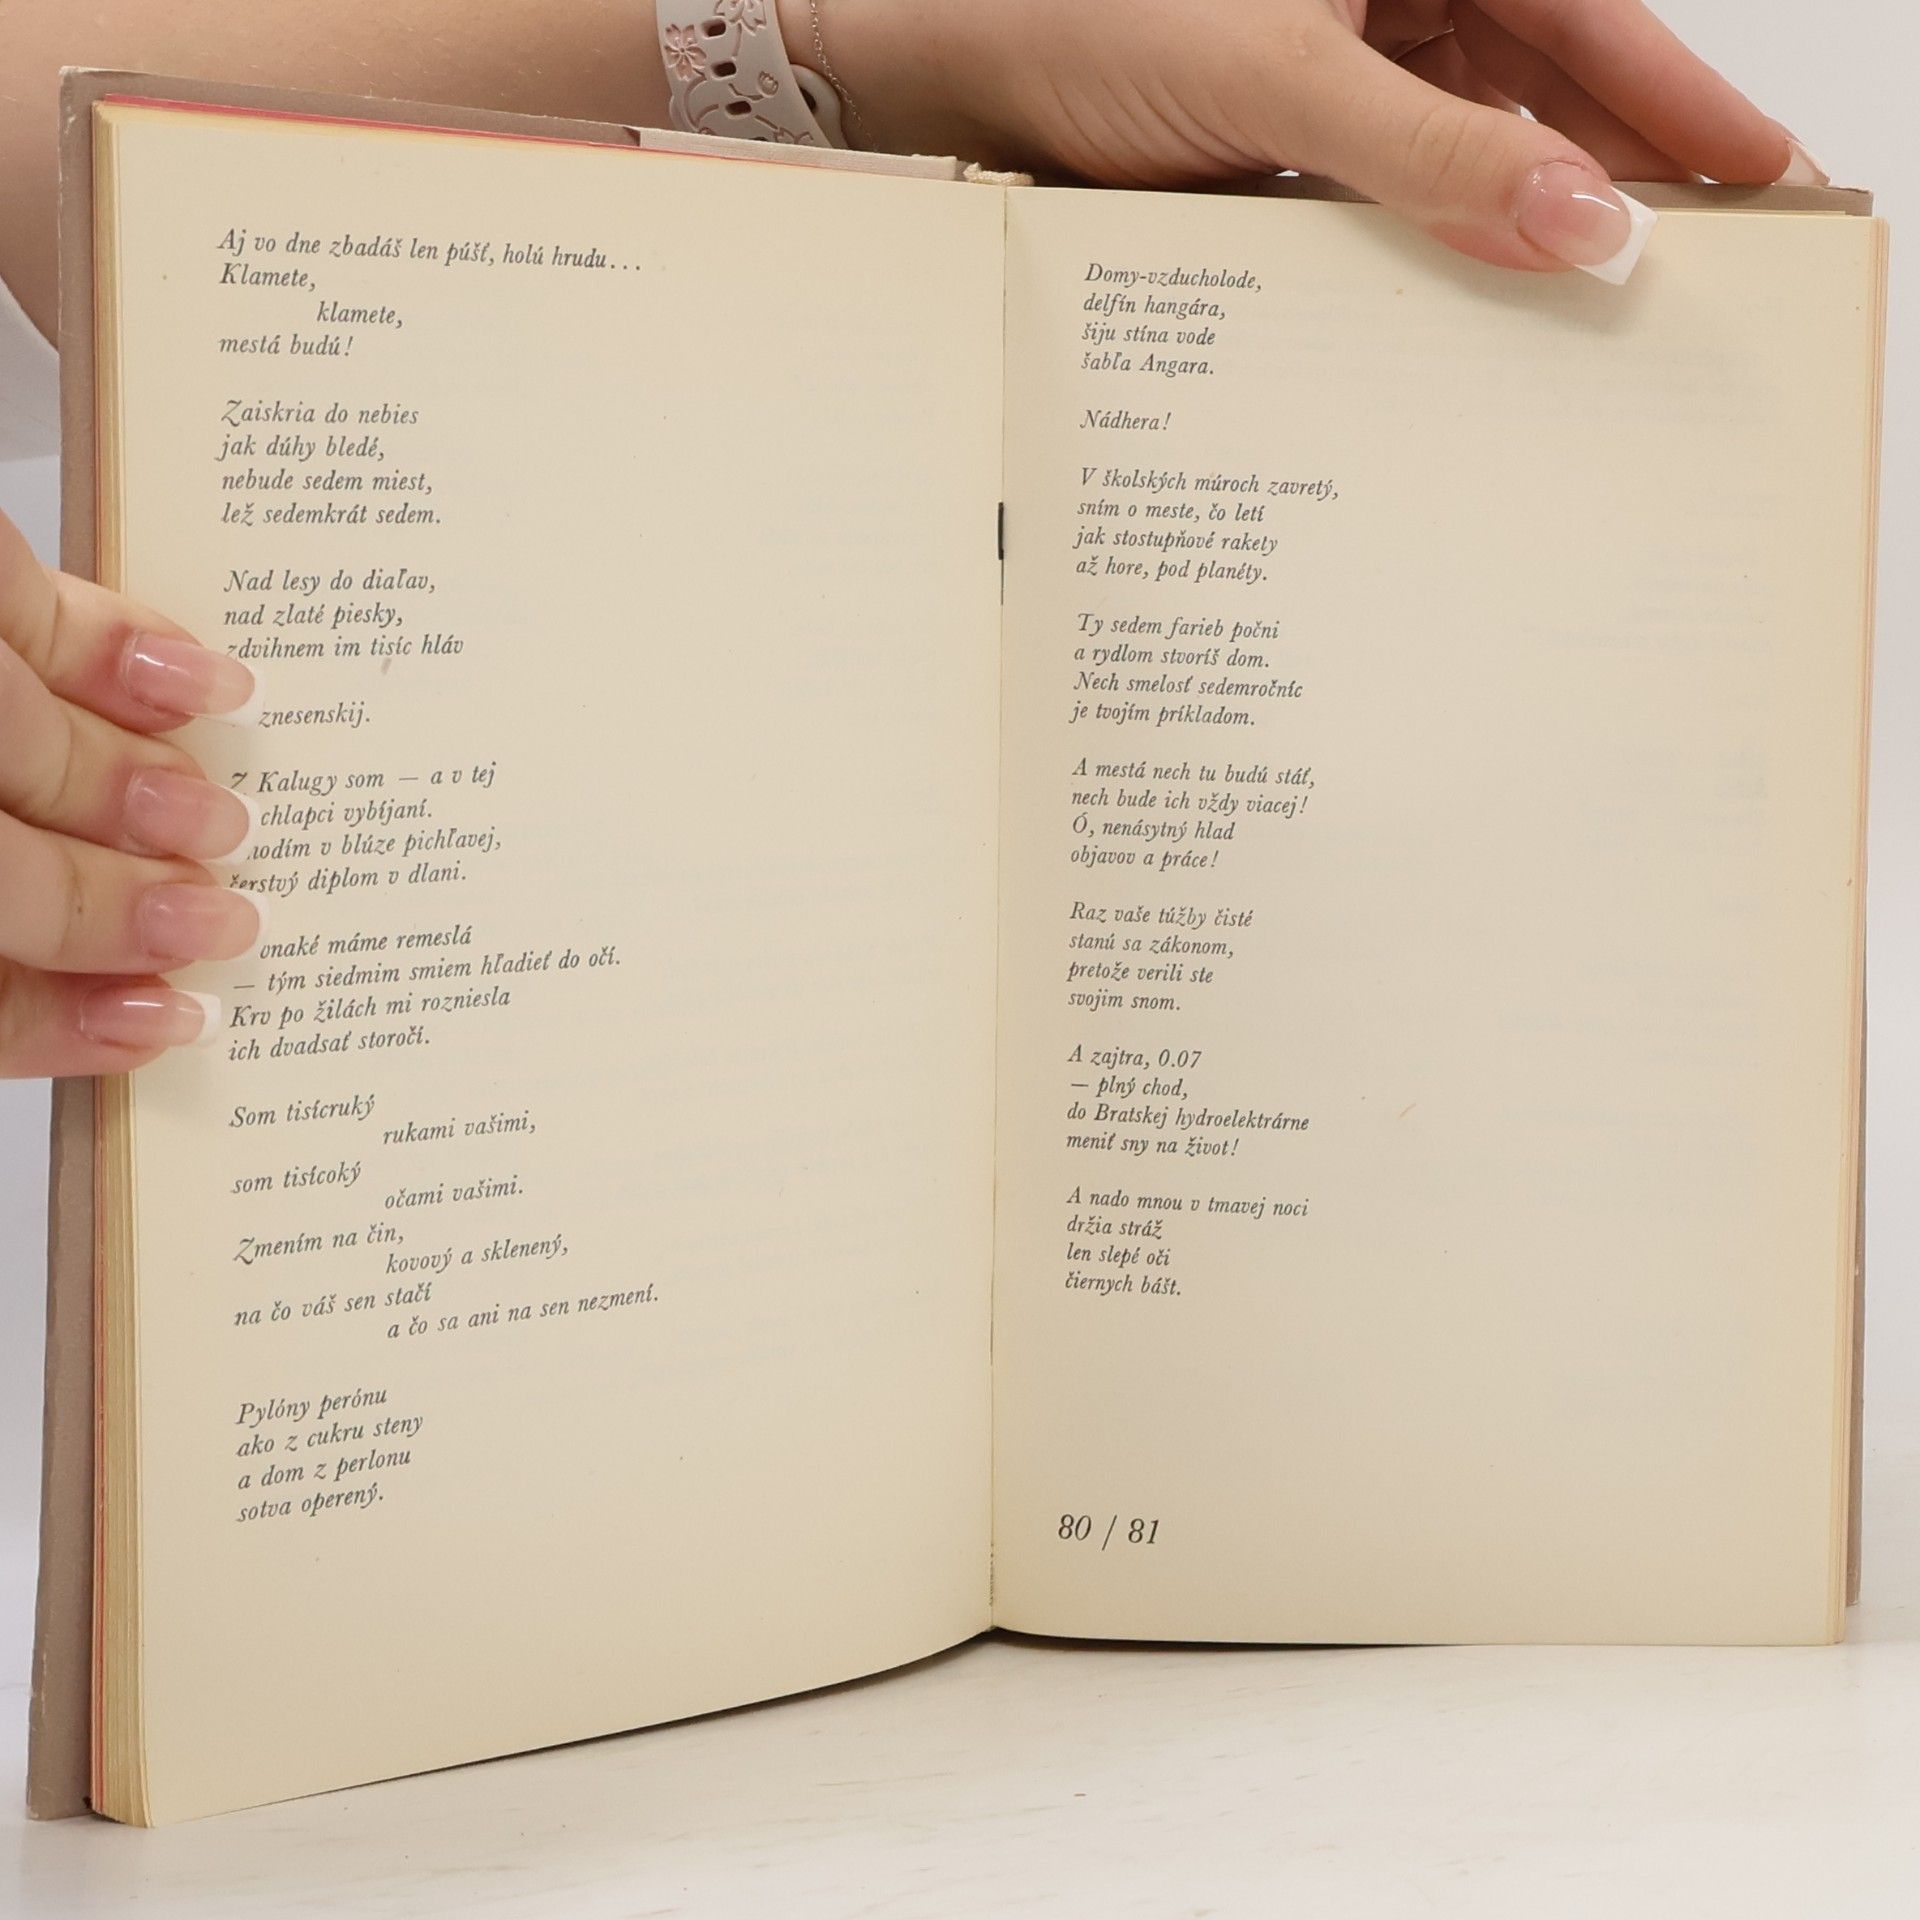 Aj vo dne zbadáš len púšť, holú hrudu...
Klamete,
klamete,
mestá budú!
Zaiskria do nebies
jak dúhy bledé,
nebude sedem miest,
lež sedemkrát sedem.
Nad lesy do diaľav,
nad zlaté piesky,
zdvihnem im tisíc hláv
znesenskij.
Z Kalugy som — a v tej
chlapci vybíjaní.
v blúze pichľavej,
čerstvý diplom v dlani.
máme remeslá
— tým siedmim smiem hľadieť do očí.
Krv po žilách mi rozniesla
ich dvadsať storočí.
Som tisícruký
rukami vašimi,
som tisícoký
očami vašimi.
Zmením na čin,
kovový a sklenený,
na čo váš sen stačí
a čo sa ani na sen nezmení.
Pylóny perónu
ako z cukru steny
a dom z perlonu
sotva operený.
Domy-vzducholode,
delfín hangára,
šiju stína vode
šabľa Angara.
Nádhera!
V školských múroch zavretý,
sním o meste, čo letí
jak stostupňové rakety
až hore, pod planéty.
Ty sedem farieb počni
a rydlom stvoríš dom.
Nech smelosť sedemročníc
je tvojím príkladom.
A mestá nech tu budú stáť,
nech bude ich vždy viacej!
Ó, nenásytný hlad
objavov a práce!
Raz vaše túžby čisté
stanú sa zákonom,
pretože verili ste
svojim snom.
A zajtra, 0.07
— plný chod,
do Bratskej hydroelektrárne
meniť sny na život!
A nado mnou v tmavej noci
držia stráž
len slepé oči
čiernych bášt.
80 / 81